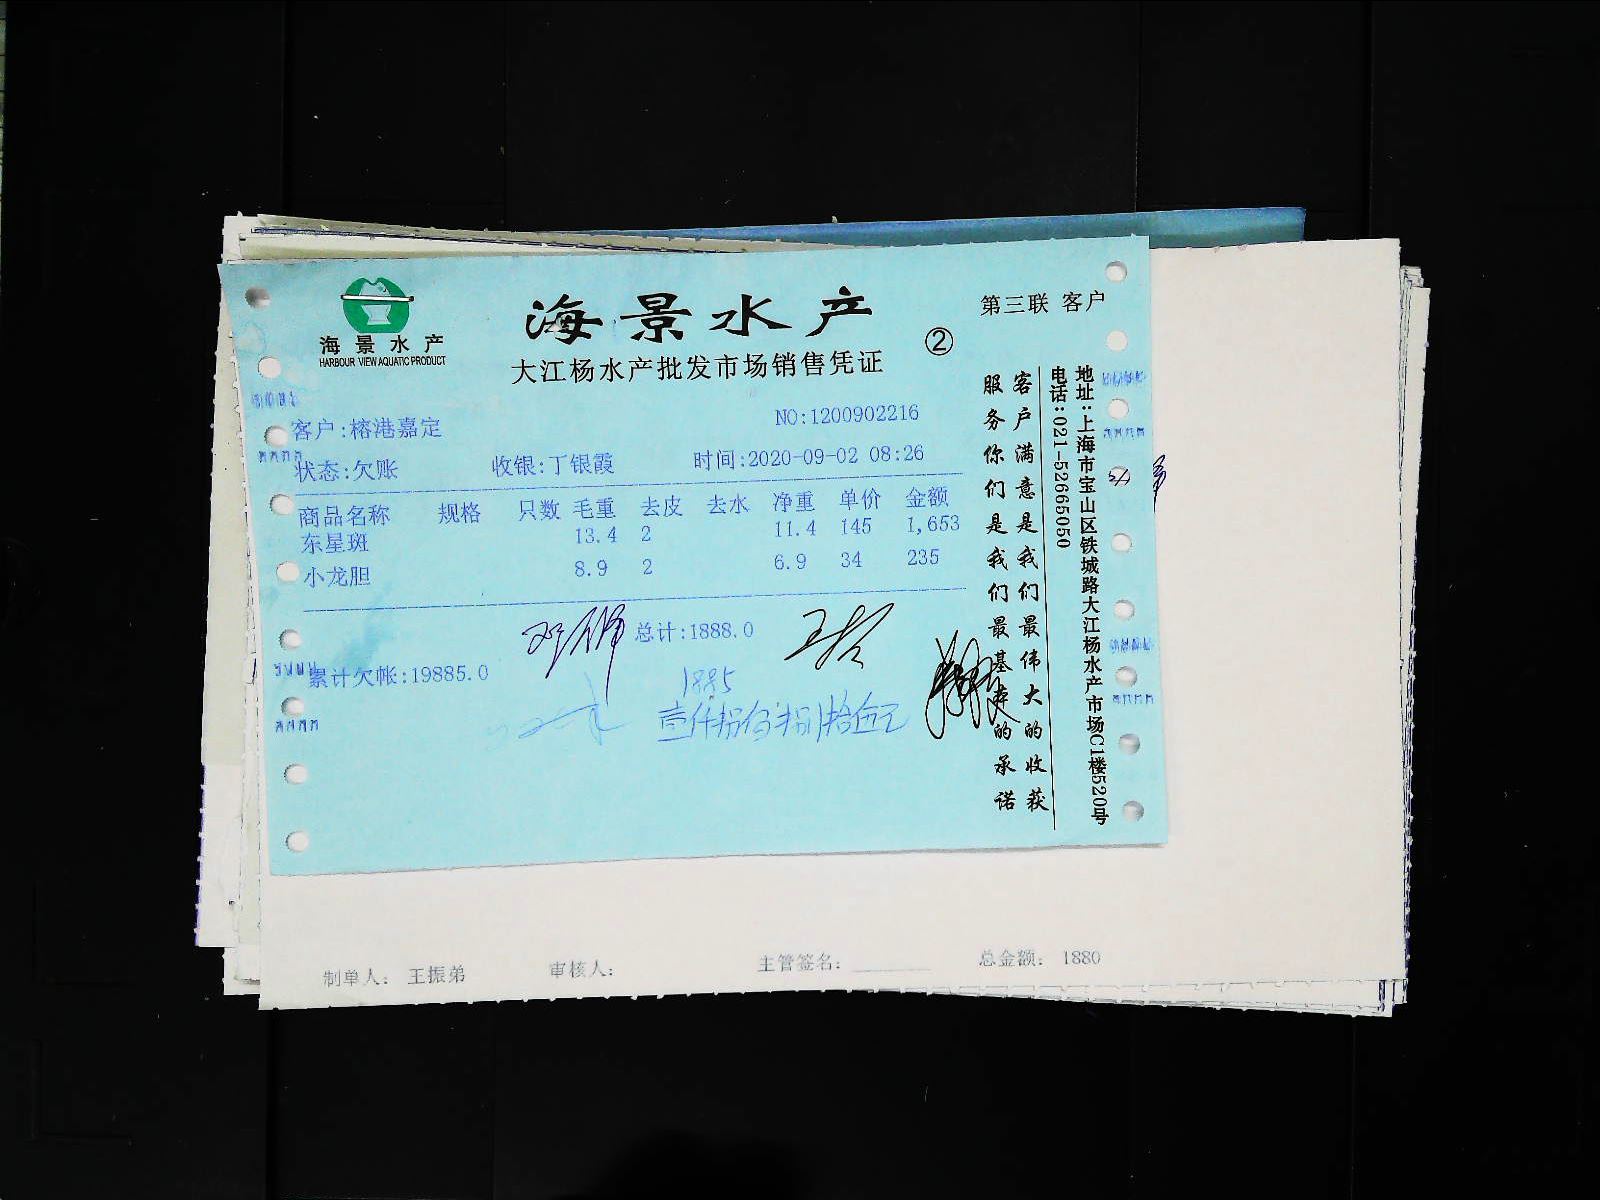 海景水产
HARBOUR VIEW AQUATIC PRODUCT
海景水产
大江杨水产批发市场销售凭证
②
第三联 客户
客户:榕港嘉定
NO:1200902216
状态:欠账 收银:丁银霞 时间:2020-09-02 08:26
商品名称 规格 只数 毛重 去皮 去水 净重 单价 金额
东星斑 13.4 2 11.4 145 1,653
小龙胆 8.9 2 6.9 34 235
总计:1888.0
累计欠帐:19885.0
1885
壹仟捌佰捌拾伍元
客户满意是我们最伟大的收获
服务你们是我们最基本的承诺
地址:上海市宝山区铁城路大江杨水产市场C1楼520号
电话:021-52665050
制单人: 王振弟 审核人: 主管签名: 总金额: 1880